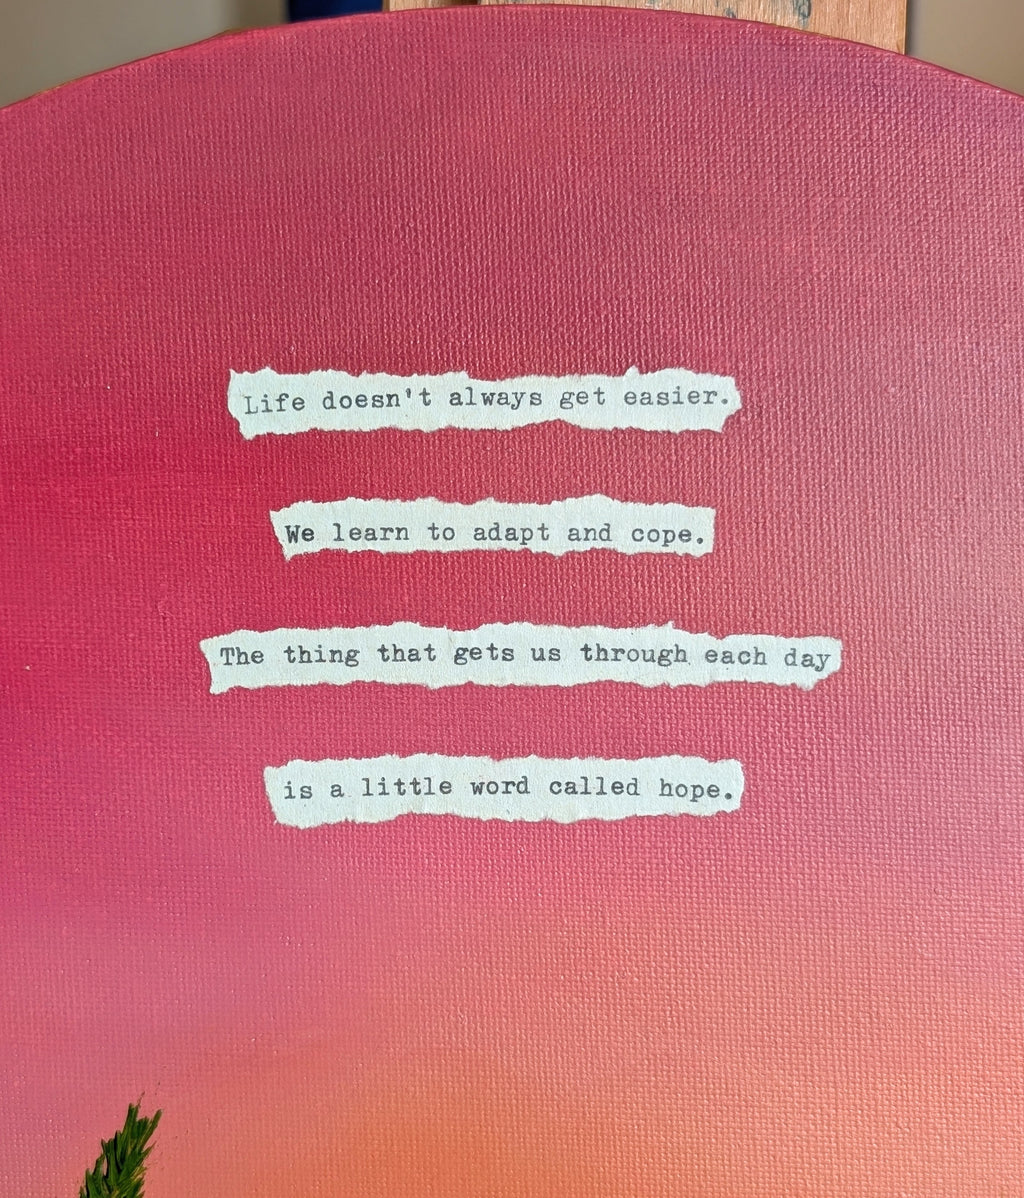 Life doesn't always get easier.
We learn to adapt and cope.
The thing that gets us through each day
is a little word called hope.